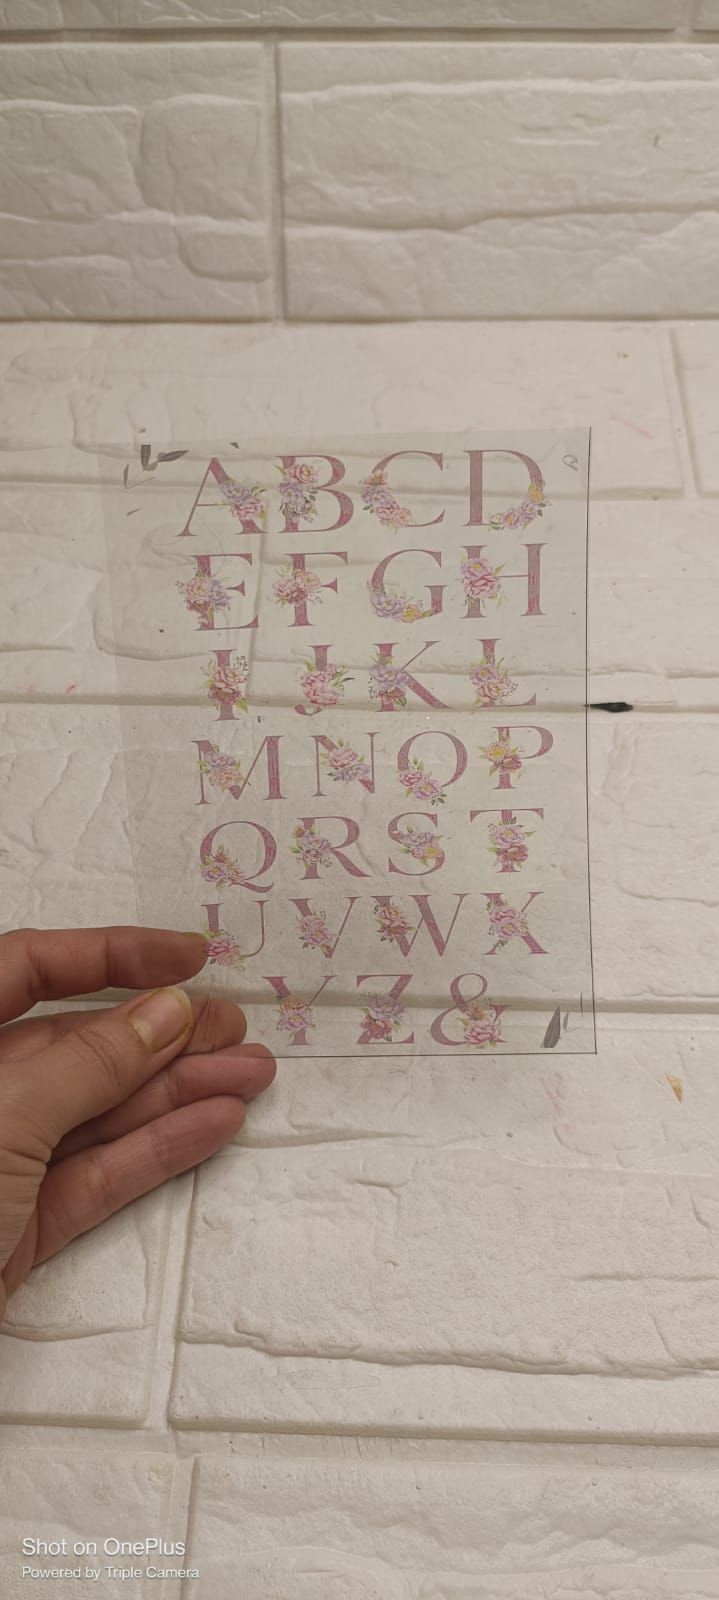 A B C D
E F G H
I J K L
M N O P
Q R S T
U V W X
Y Z &
Shot on OnePlus
Powered by Triple Camera